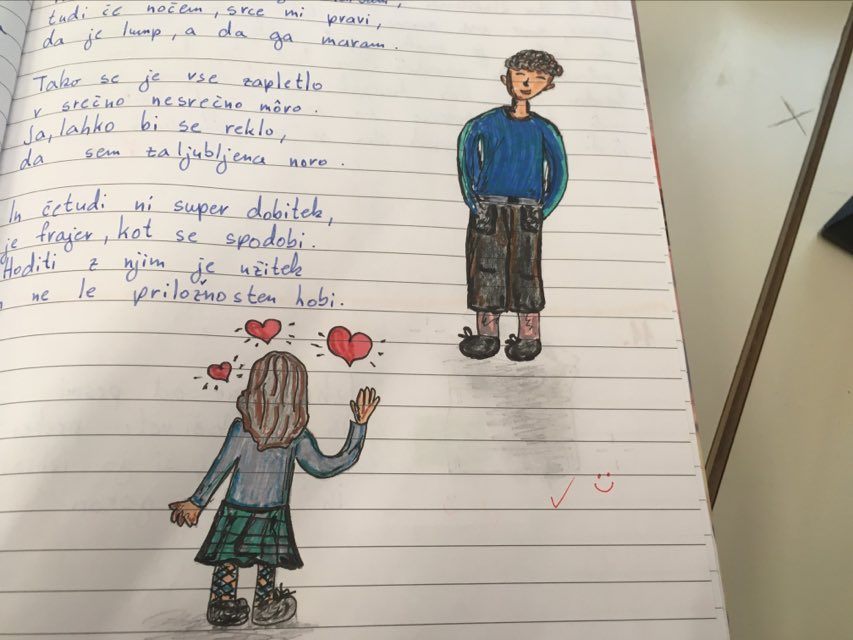 tudi če nočem, srce mi pravi,
da je lump, a da ga maram.
Tako se je vse zapletlo
v srečno nesrečno môro.
Ja, lahko bi se reklo,
da sem zaljubljena noro.
In četudi ni super dobitek,
je frajer, kot se spodobi.
Hoditi z njim je užitek
ne le priložnosten hobi.